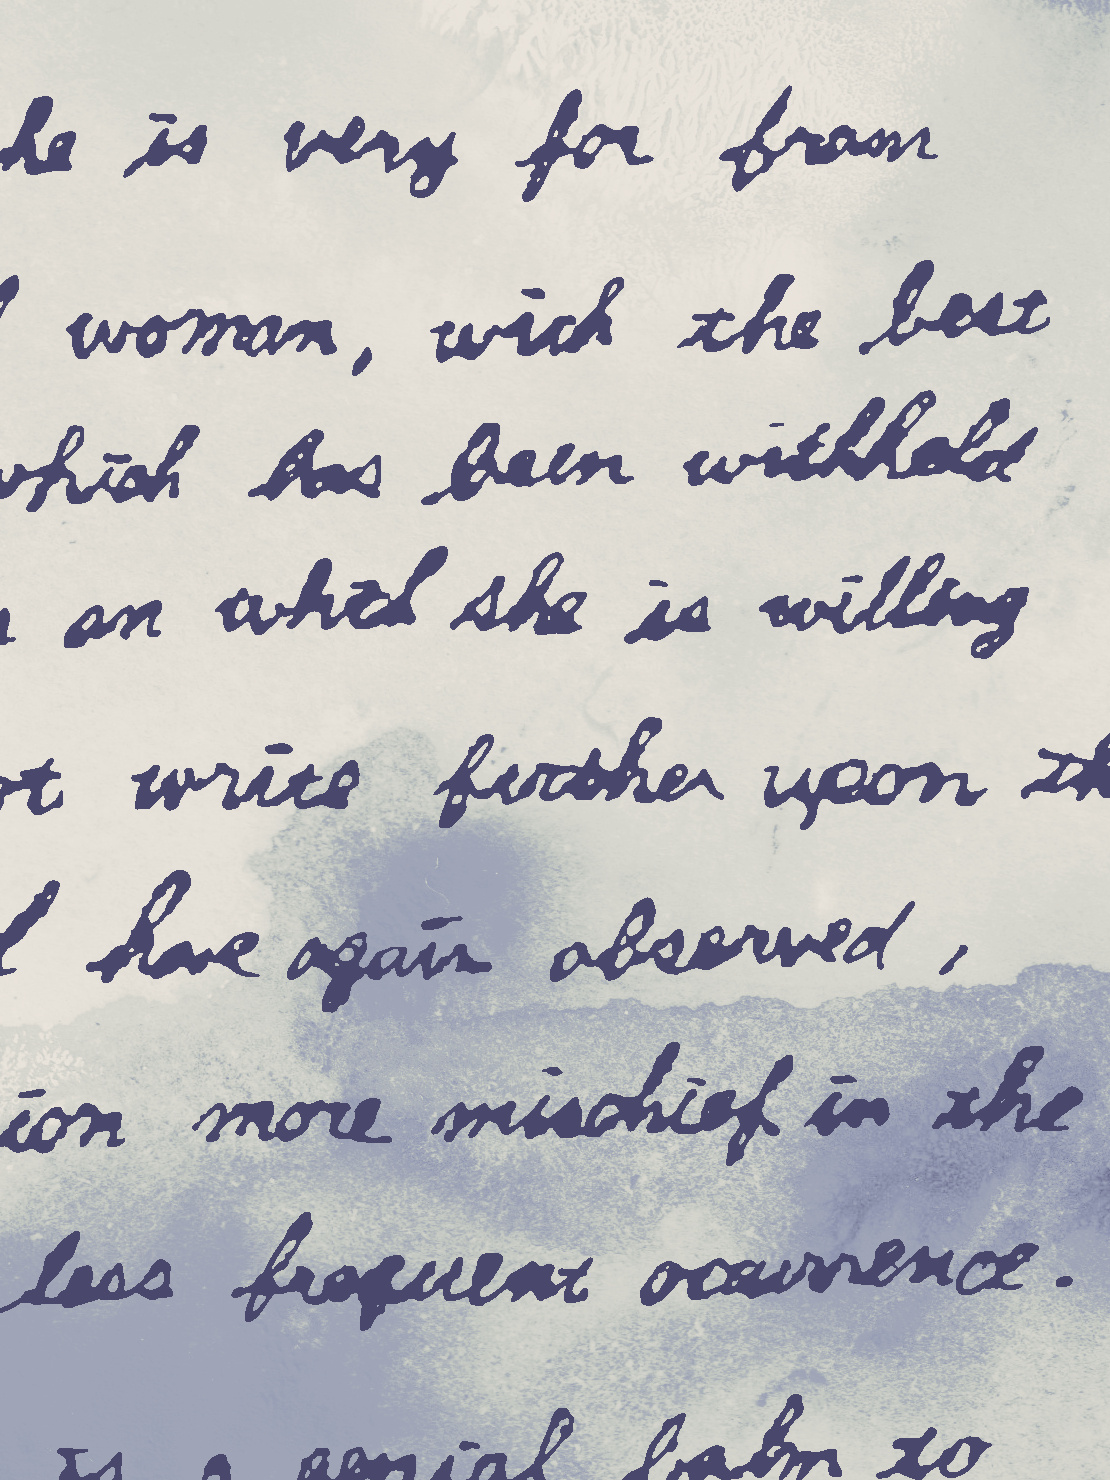 he is very for from
woman, wich the best
which has been withheld
an which she is willing
write further upon
have again observed,
more mischief in the
less frequent ocurrence.
is a genial balm to